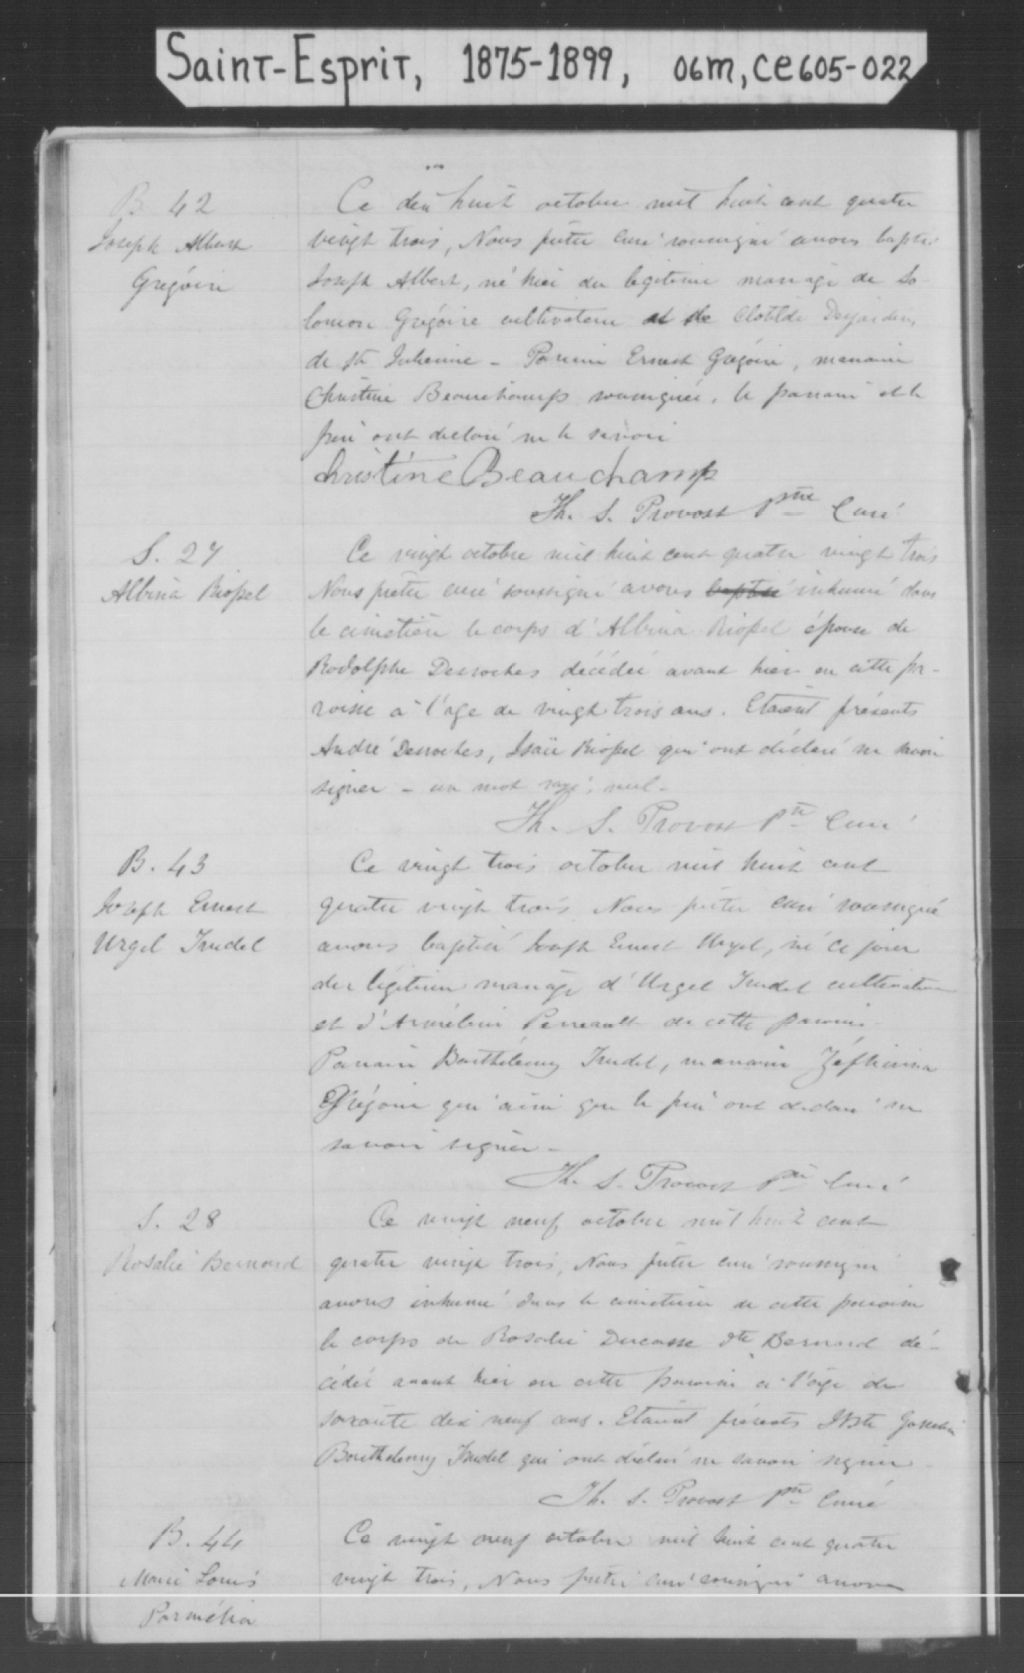 Saint-Esprit, 1875-1899, 06m, ce605-022
B 42
Joseph Albert
Grégoire
Ce dix huit octobre mil huit cent quatre
vingt trois, Nous prêtre curé soussigné avons baptisé
Joseph Albert, né hier du légitime mariage de So-
lomon Grégoire cultivateur et de Clotilde Desjardins
de Ste Julienne - Parrain Ernest Grégoire, marraine
Christine Beauchamp soussignée, le parrain et le
père ont déclaré ne le savoir
Christine Beauchamp
Th. S. Provost Ptre Curé
S. 27
Albina Riopel
Ce vingt octobre mil huit cent quatre vingt trois
Nous prêtre curé soussigné avons baptisé inhumé dans
le cimetière le corps d'Albina Riopel épouse de
Rodolphe Desroches décédée avant hier en cette pa-
roisse à l'age de vingt trois ans. Etaient présents
André Desroches, Isaïe Riopel qui ont déclaré ne savoir
signer - un mot rayé nul -
Th. S. Provost Ptre Curé
B. 43
Joseph Ernest
Urgel Trudel
Ce vingt trois octobre mil huit cent
quatre vingt trois Nous prêtre curé soussigné
avons baptisé Joseph Ernest Urgel, né ce jour
du légitime mariage d'Urgel Trudel cultivateur
et d'Azmélini Perreault de cette paroisse
Parrain Barthélemy Trudel, marraine Zéphirina
Grégoire qui ainsi que le père ont déclaré ne
savoir signer -
Th. S. Provost Ptre Curé
S. 28
Rosalie Bernard
Ce vingt neuf octobre mil huit cent
quatre vingt trois, Nous prêtre curé soussigné
avons inhumé dans le cimetière de cette paroisse
le corps de Rosalie Ducasse dte Bernard dé-
cédée avant hier en cette paroisse à l'âge de
soixante dix neuf ans. Etaient présents
Barthelemy Trudel qui ont déclaré ne savoir signer
Th. S. Provost Ptre Curé
B. 44
Marie Louis
Parmélia
Ce vingt neuf octobre mil huit cent quatre
vingt trois, Nous prêtre curé soussigné avons